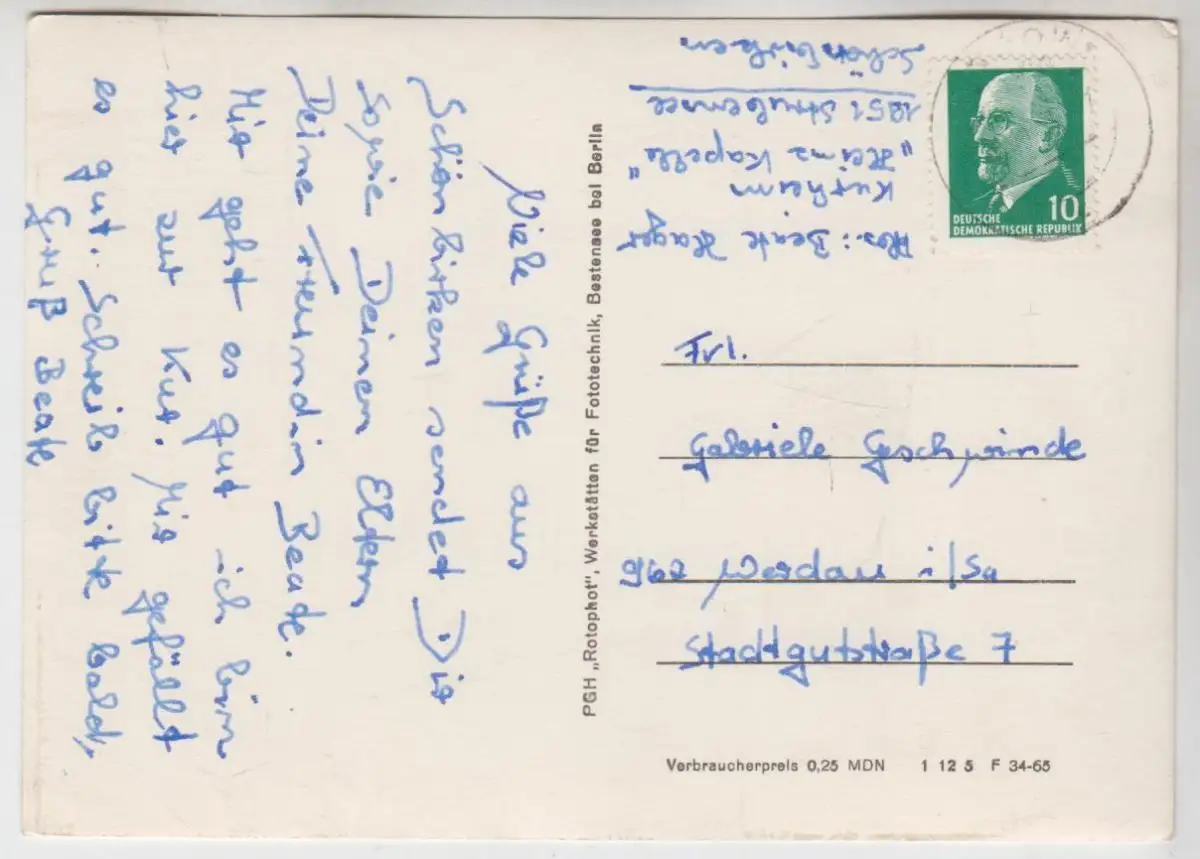 Viele Grüße aus
Schönbirken sendet Dir
sowie Deinen Eltern
Deine Freundin Beate.
Mir geht es gut ich bin
hier zur Kur. Mir gefällt
es gut. Schreib bitte bald,
Gruß Beate
PGH „Rotophot", Werkstätten für Fototechnik, Bestensee bei Berlin
Abs.: Beate
Kurheim
„Heinz Kapelle"
Schönbirken
DEUTSCHE
DEMOKRATISCHE REPUBLIK
10
Frl.
Gabriele Geschwinde
962 Werdau i/Sa
Stadtgutstraße 7
Verbraucherpreis 0,25 MDN 1 12 5 F 34-65